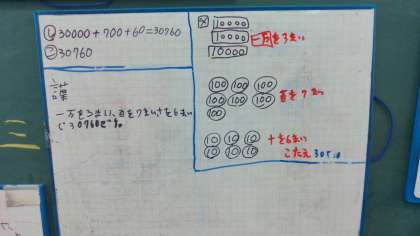 ① 30000+700+60=30760
② 30760
言葉
一万を3まい、百を7まい、十を6まい
で30760です。
図
10000
10000
10000
一万を3まい
100 100 100
100 100 100
100
百を7まい
10 10 10
10 10 10
十を6まい
こたえ